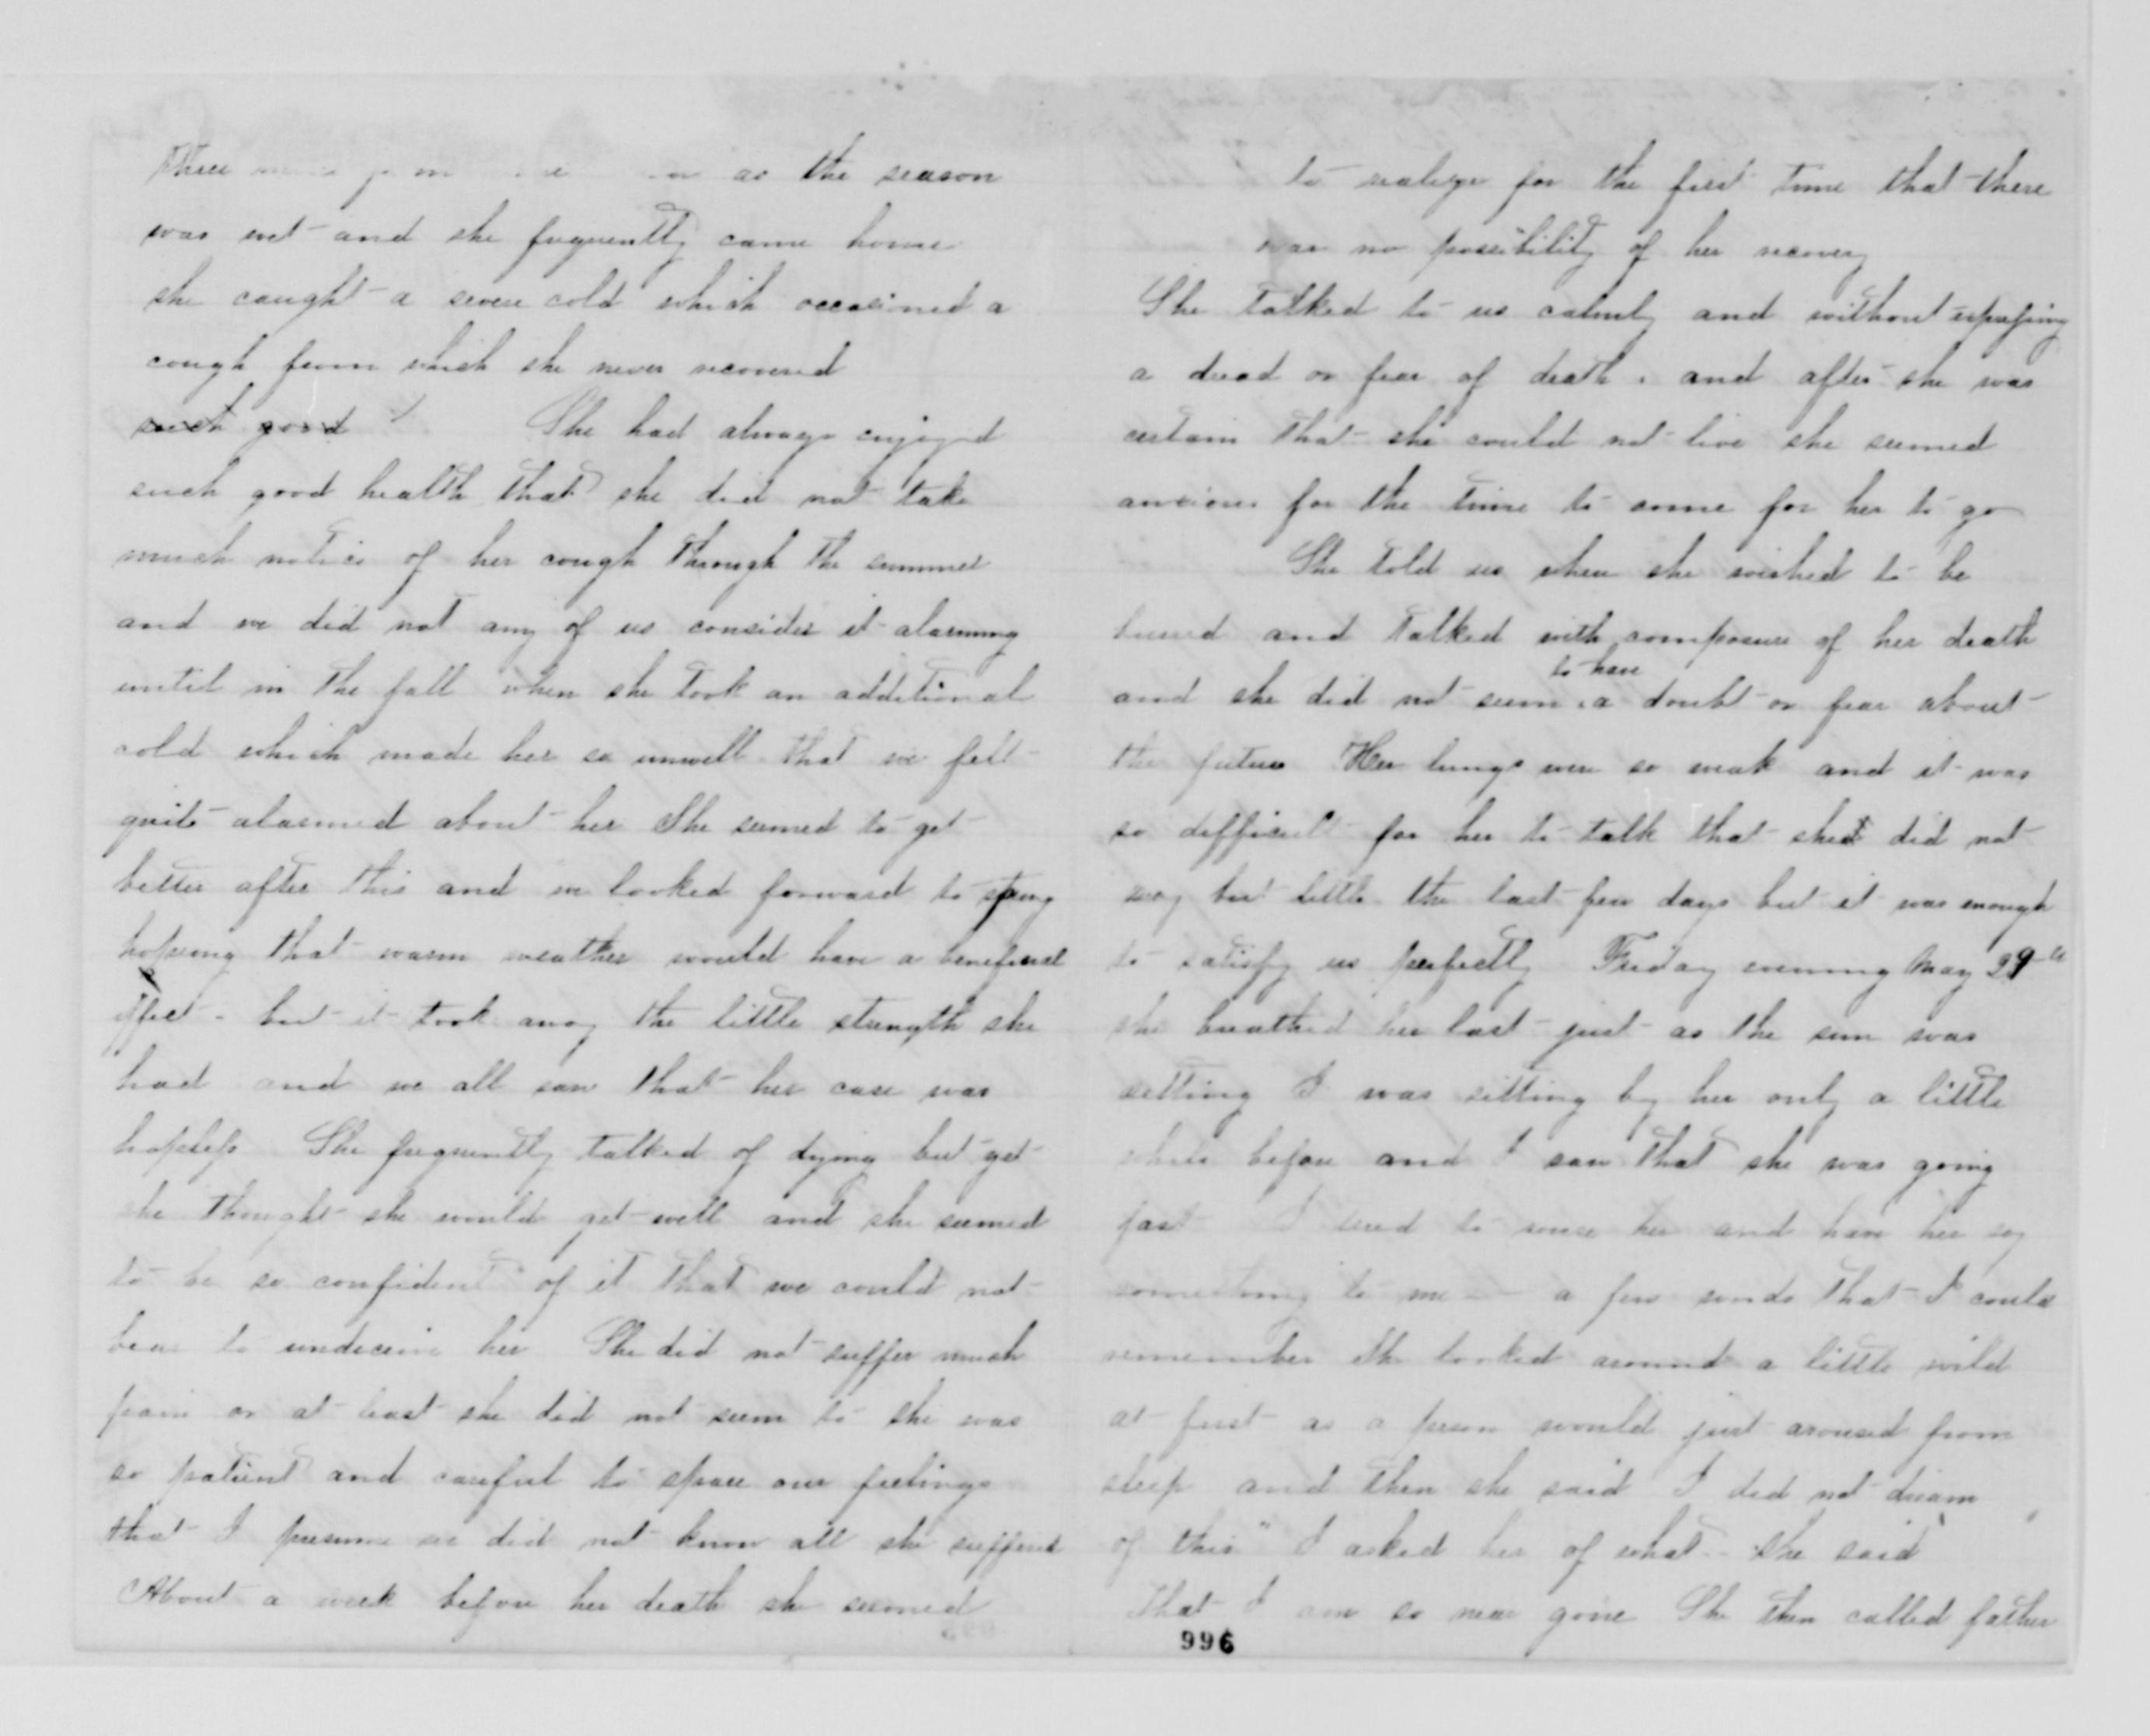 There as the season
was wet and she frequently came home
she caught a severe cold which occasioned a
cough from which she never recovered
such good She had always enjoyed
such good health that she did not take
much notice of her cough through the summer
and we did not any of us consider it alarming
until in the fall when she took an additional
cold which made her so unwell that we felt
quite alarmed about her She seemed to get
better after this and we looked forward to spring
hopeing that warm weather would have a beneficial
effect - but it took away the little strength she
had and we all saw that her case was
hopeless She frequently talked of dying but yet
she thought she would get well and she seemed
to be so confident of it that we could not
bear to undeceive her She did not suffer much
pain or at least she did not seem to she was
so patient and careful to spare our feelings
that I presume we did not know all she suffered
About a week before her death she seemed
to realize for the first time that there
was no possibility of her recovery
She talked to us calmly and without expressing
a dread or fear of death . and after she was
certain that she could not live she seemed
anxious for the time to come for her to go
She told us where she wished to be
buried and talked with composure of her death
and she did not seem to have a doubt or fear about
the future Her lungs were so weak and it was
so difficult for her to talk that she did not
say but little the last few days but it was enough
to satisfy us perfectly Friday evening May 29th
she breathed her last just as the sun was
setting I was sitting by her only a little
while before and I saw that she was going
fast I tried to rouse her and have her say
something to me - a few words that I could
remember She looked around a little wild
at first as a person would just aroused from
sleep and then she said I did not dream
of this" I asked her of what - she said "
that I am so near gone She then called father
996